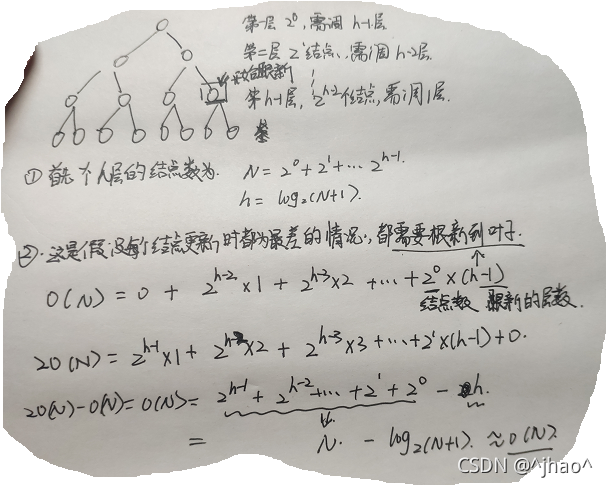 第一层 2⁰, 需调 h-1层
第二层 2¹结点, 需调 h-2层.
开始更新
第h-1层, 2^{h-2}个结点, 需调1层.
① 首先 个h层的结点数为. N = 2⁰ + 2¹ + ... 2^{h-1}.
h = log₂(N+1).
②. 这是假设每个结点更新时都为最差的情况, 都需要根新到叶子.
O(N) = 0 + 2^{h-2}×1 + 2^{h-3}×2 + ... + 2⁰×(h-1)
结点数 跟新的层数.
2O(N) = 2^{h-1}×1 + 2^{h-2}×2 + 2^{h-3}×3 + ... + 2¹×(h-1) + 0.
2O(N)-O(N) = O(N) = 2^{h-1} + 2^{h-2} + ... + 2¹ + 2⁰ - h.
= N. - log₂(N+1). ≈ O(N).
CSDN @^jhao^